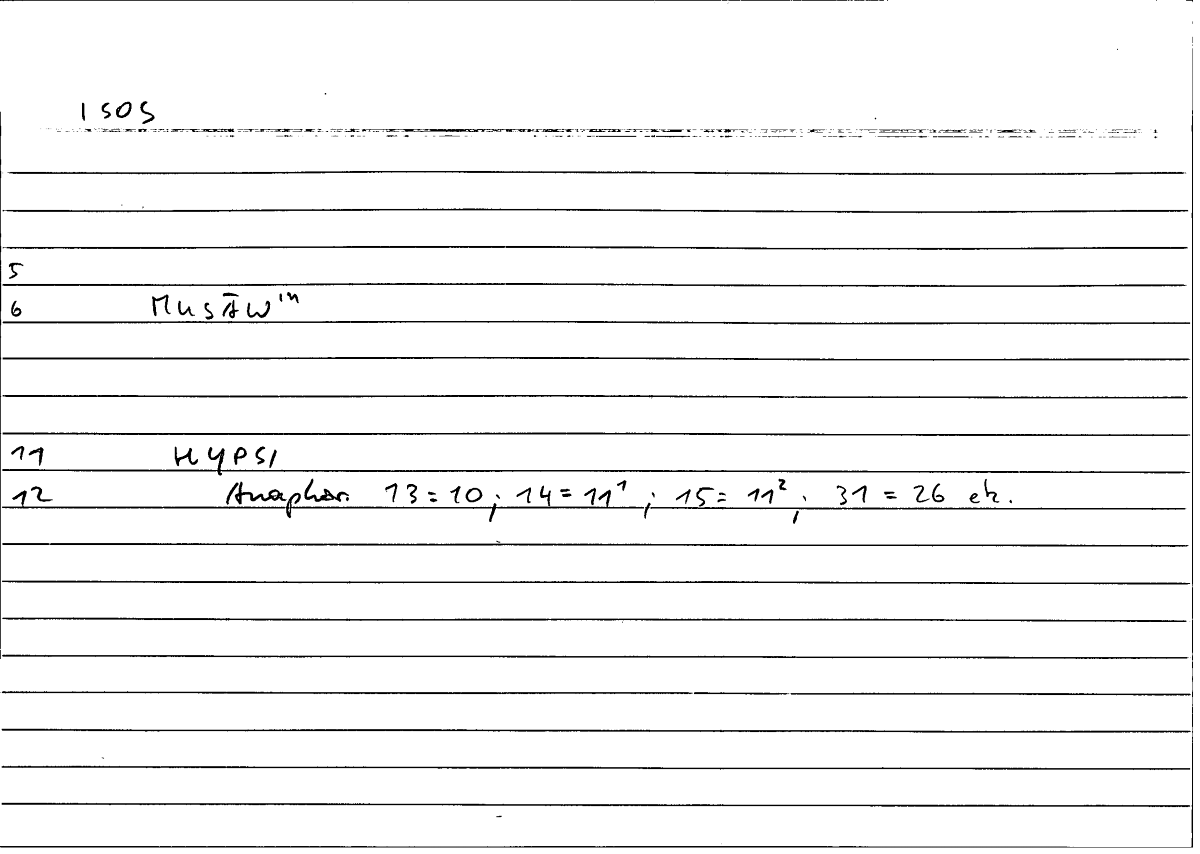 ISOS
5
6 MUSĀWin
11 HYPSI
12 Anaphor. 13 = 10; 14 = 11¹; 15 = 11²; 31 = 26 etc.